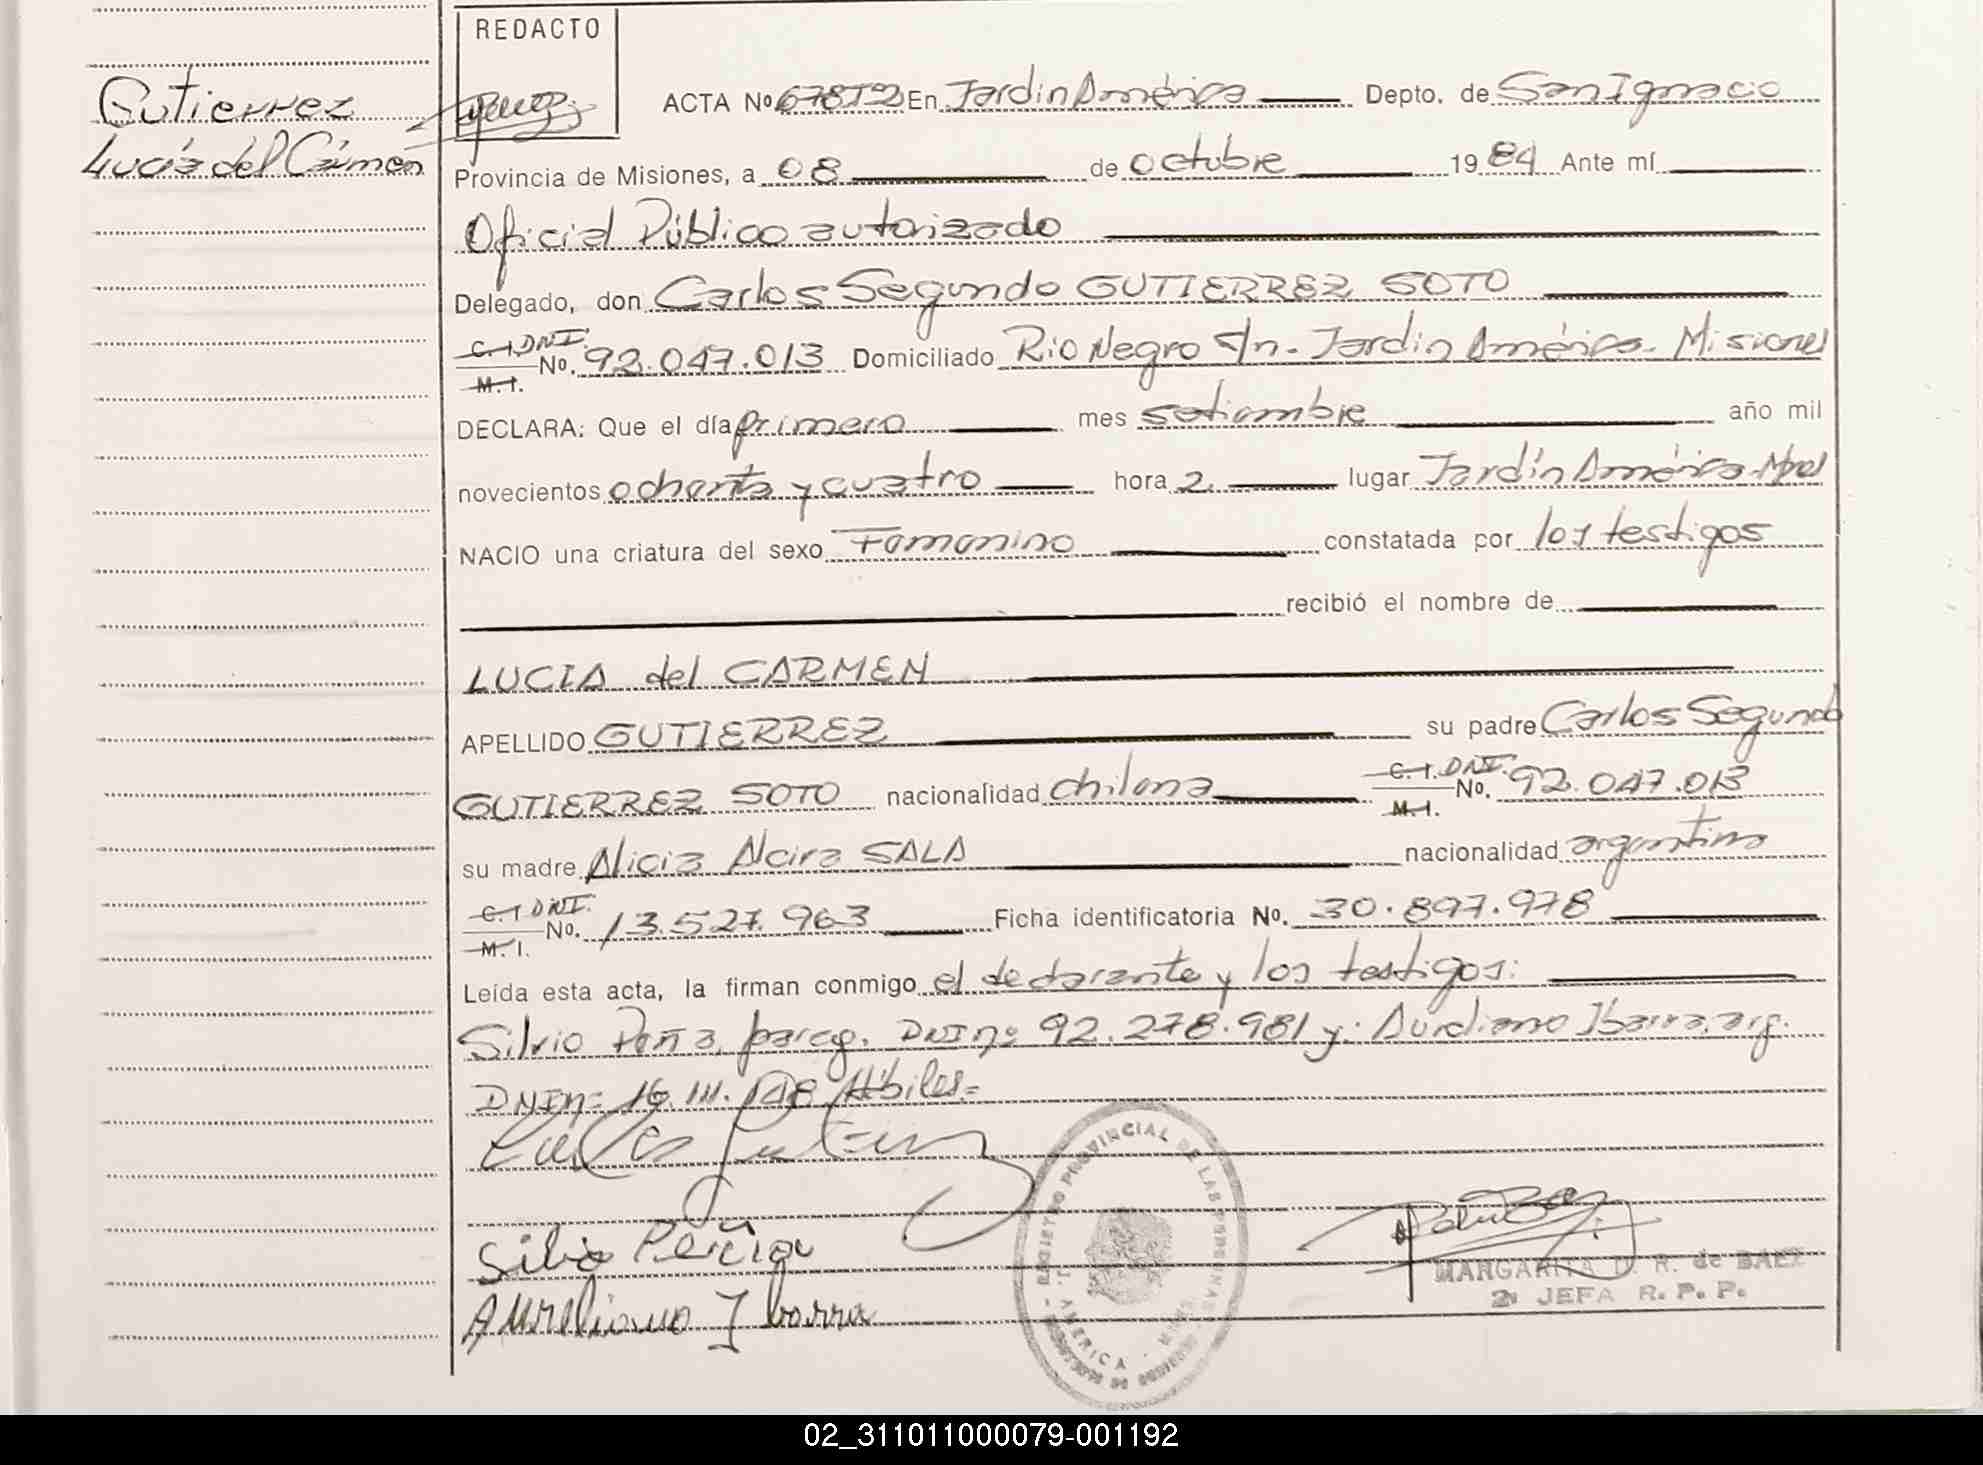 Gutierrez
Lucía del Cármen
REDACTO
ACTA No 678Tº2 En Jardín América Depto. de San Ignacio
Provincia de Misiones, a 08 de octubre 1984 Ante mí
Oficial Público autorizado
Delegado, don Carlos Segundo GUTIERREZ SOTO
C. I. DNI. M. I. No. 92.047.013 Domiciliado Rio Negro s/n. Jardín América. Misiones
DECLARA: Que el día primero mes setiembre año mil
novecientos ochenta y cuatro hora 2. lugar Jardín América-Mnes
NACIO una criatura del sexo Femenino constatada por los testigos
recibió el nombre de
LUCIA del CARMEN
APELLIDO GUTIERREZ su padre Carlos Segundo
GUTIERREZ SOTO nacionalidad chilena C. I. DNI. M. I. No. 92.047.013
su madre Alicia Alcira SALA nacionalidad argentina
C. I DNI. M. I. No. 13.527.963 Ficha identificatoria No. 30.897.978
Leída esta acta, la firman conmigo el declarante y los testigos:
Silvio parag. DNI nº 92.278.981 y: Aureliano Ibarra, arg.
DNI nº 16.111.148 Hábiles.=
Carlos Gutierrez
Silvio
Aureliano Ibarra
REGISTRO PROVINCIAL DE LAS PERSONAS
J. AMERICA - MNES
MARGARITA D. R. de BAEZ
2ª JEFA R. P. P.
02_311011000079-001192